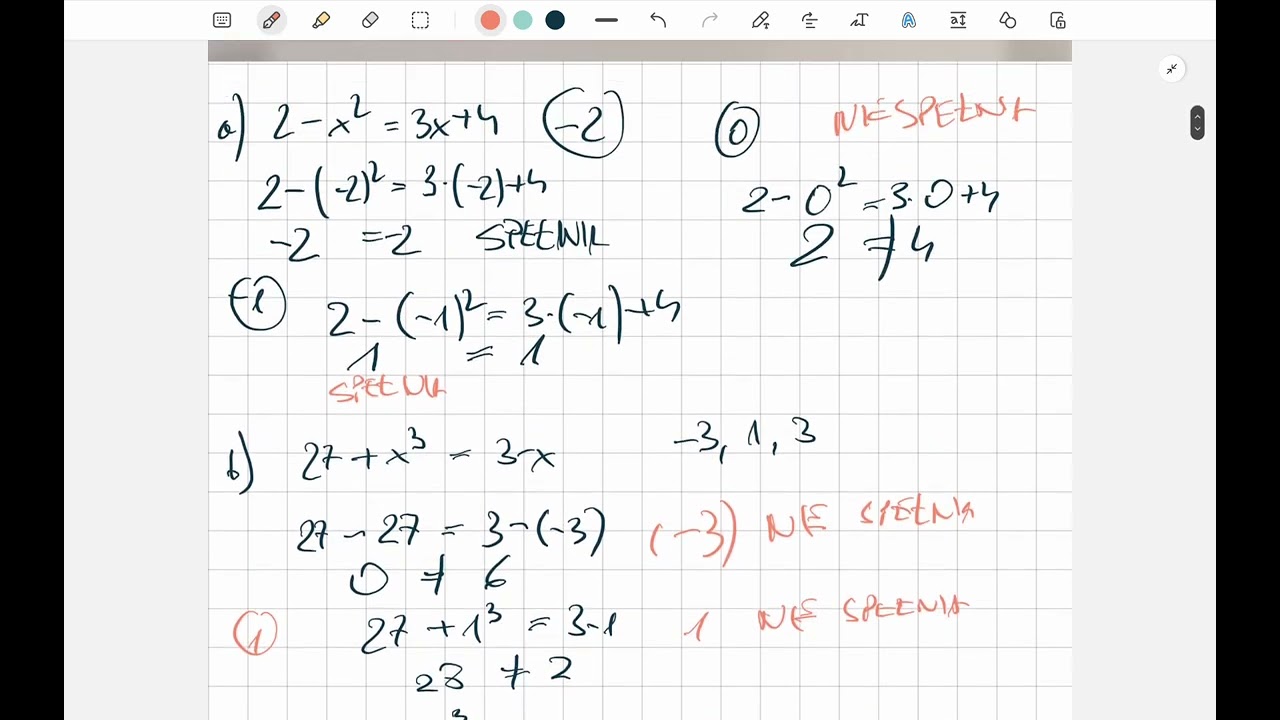 a) 2-x² = 3x+4 (-2)
2-(-2)² = 3·(-2)+4
-2 = -2 SPEŁNIA
0 NIE SPEŁNIA
2-0² = 3·0+4
2 ≠ 4
-1 2-(-1)² = 3·(-1)+4
1 = 1
SPEŁNIA
b) 27+x³ = 3-x -3, 1, 3
27-27 = 3-(-3) (-3) NIE SPEŁNIA
0 ≠ 6
1 27+1³ = 3-1 1 NIE SPEŁNIA
28 ≠ 2
3